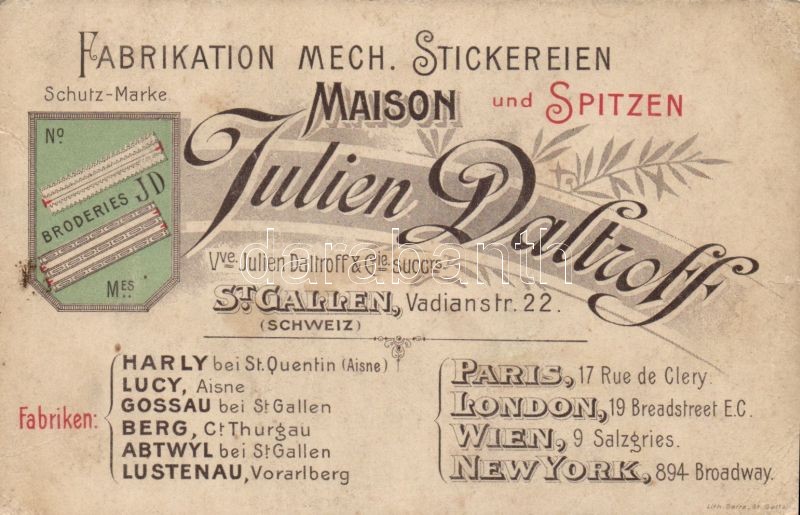 FABRIKATION MECH. STICKEREIEN
Schutz-Marke
MAISON und SPITZEN
No
BRODERIES JD
Mes
Julien Daltroff
Vve. Julien Daltroff & Cie. succrs.
ST. GALLEN, Vadianstr. 22.
(SCHWEIZ)
Fabriken:
HARLY bei St. Quentin (Aisne)
LUCY, Aisne
GOSSAU bei St Gallen
BERG, Ct Thurgau
ABTWYL bei St Gallen
LUSTENAU, Vorarlberg
PARIS, 17 Rue de Clery.
LONDON, 19 Breadstreet E.C.
WIEN, 9 Salzgries.
NEW YORK, 894 Broadway.
darabanth